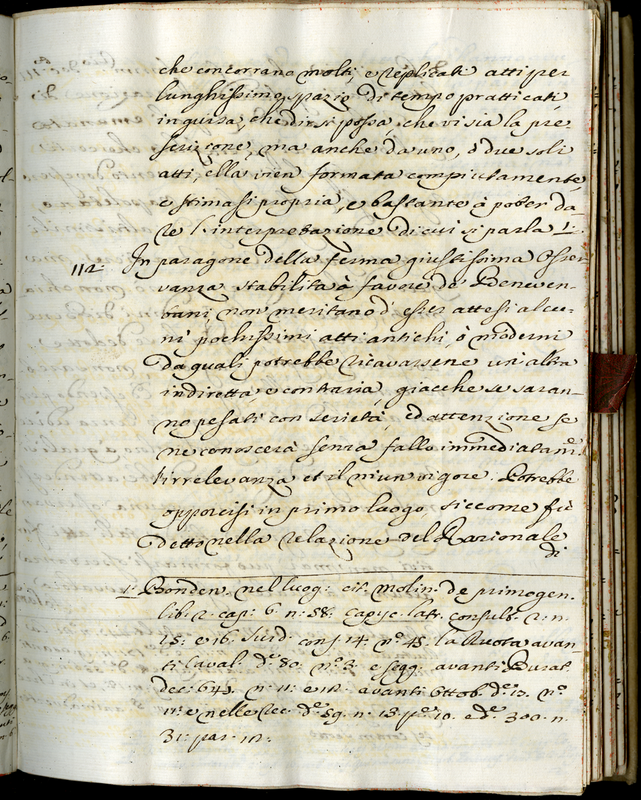 che concorrano molti, e replicati atti per
lunghissimo spazio di tempo pratticati
in guisa, che dirsi possa, che vi sia la pre-
scrizione, ma anche da uno, ò due soli
atti, ella vien formata compiutamente,
e stimasi propria, e bastante à poter da-
re l'interpretazione di cui si parla 1.
112 In paragone della ferma giustissima Osser-
vanza stabilita à favore de' Beneven-
tani non meritano d'esser attesi alcu-
ni pochissimi atti antichi, ò moderni
da quali potrebbe ricavarsene un'altra
indiretta e contraria, giacche se saran-
no pesati con serietà, ed attenzione se
ne conoscerà senza fallo immediatam.e
l'irrelevanza et il niun vigore. Potrebbe
opporcisi in primo luogo, siccome fù
detto nella relazione del Razionale
di
1. Bonden. nel luog: cit. Molin. de primogen.
lib: 2. cap: 6. n: 58: Capyc. latr. consult. 2: n:
15: e 16: Surd. cons. 14. n.o 45. la Ruota avan-
ti Caval. d.e 80. n.o 3. e segg: avanti Burat.
dec: 643. n: 11: e 12. avanti Ottob. d.e 13. n.o
11: e nelle rec. d.e 59. n. 15. p.e 10. e d.e 300. n.
31: par. 12.